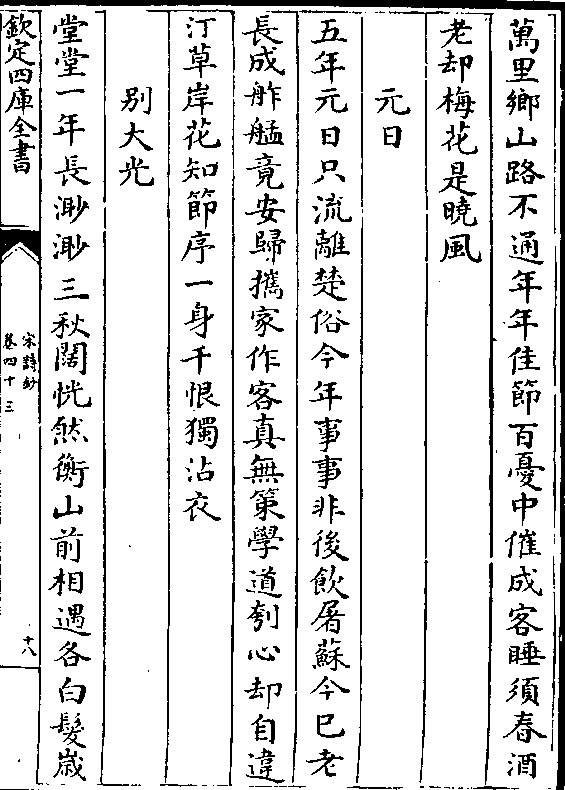 萬里鄉山路不通年年佳節百憂中催成客睡須春酒
老却梅花是曉風
元日
五年元日只流離楚俗今年事事非後飲屠蘇今已老
長成舴艋竟安歸攜家作客真無策學道刳心却自違
汀草岸花知節序一身千恨獨沾衣
别大光
堂堂一年長渺渺三秋闊恍然衡山前相遇各白髪嵗
欽定四庫全書
宋詩鈔
卷四十三
十八